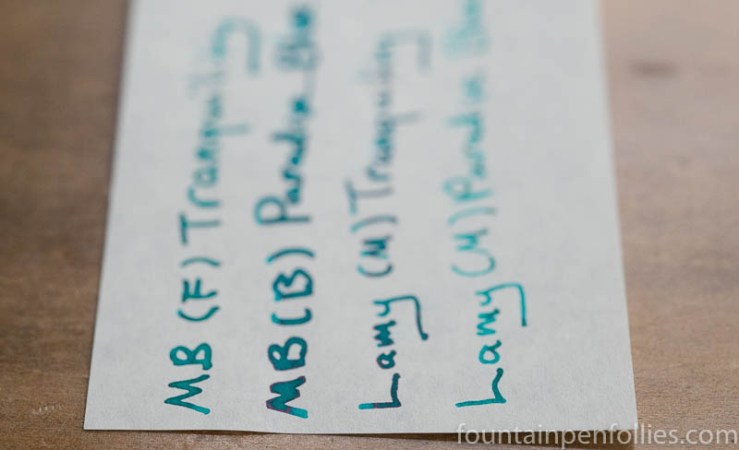 MB (F) Tranquility
MB (B) Paradise Blue
Lamy (M) Tranquility
Lamy (M) Paradise Blue
fountainpenfollies.com